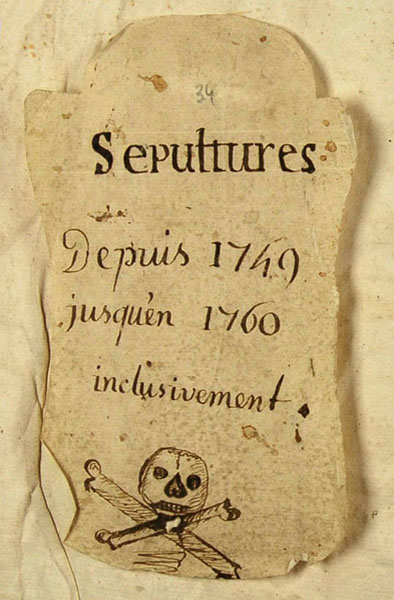 34
Sepultures
Depuis 1749
jusqu'en 1760
inclusivement.